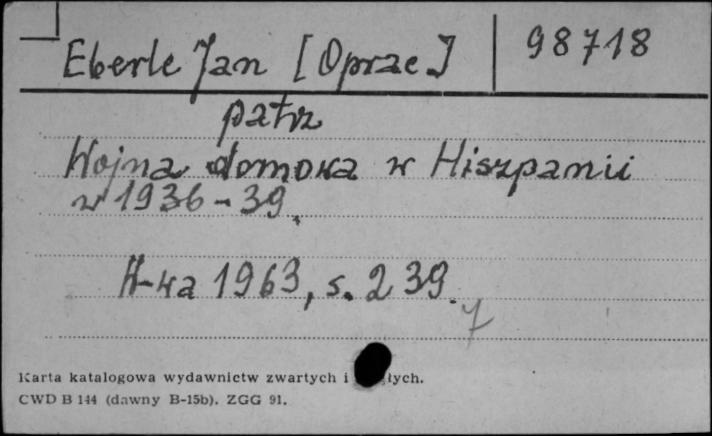 Eberle Jan [Oprac.] 98718
patrz
Wojna domowa w Hiszpanii
w 1936-39.
W-wa 1963, s. 239.
7
Karta katalogowa wydawnictw zwartych i
CWD B 144 (dawny B-15b). ZGG 91.